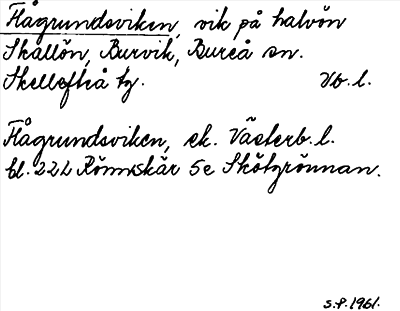 Flågrundsviken, vik på halvön
Skallön, Burvik, Bureå sn.
Skellefteå tg. Vb. l.
Flågrundsviken, ek. Västerb. l.
bl. 22L Rönnskär 5e Skötgrönnan.
S.P. 1961.